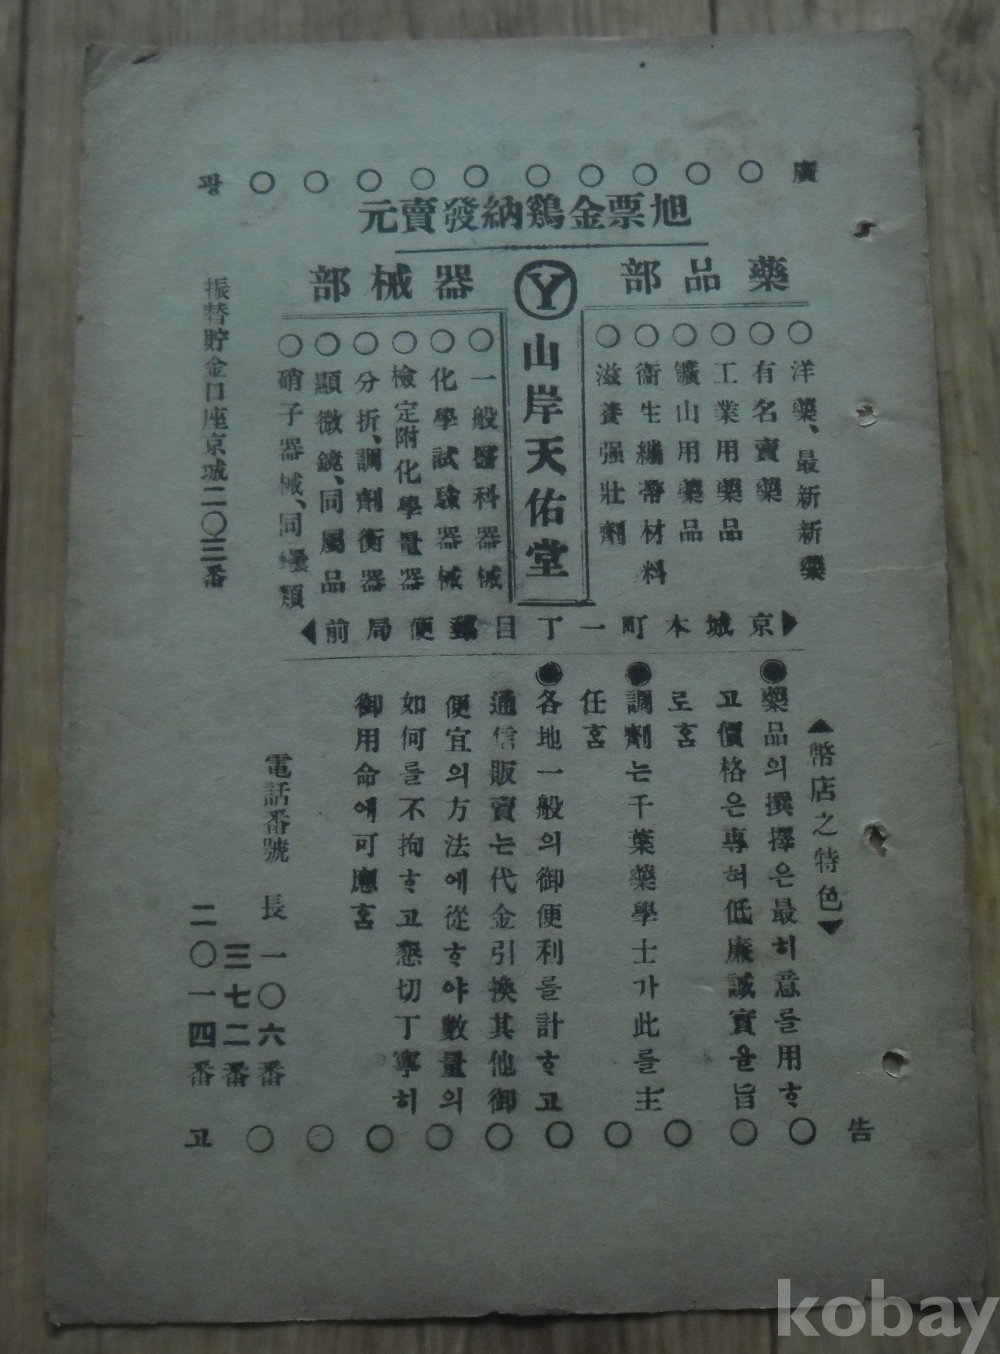 廣○○○○○○○○○○광
旭票金鷄納發賣元
藥品部
○洋藥、最新新藥
○有名賣藥
○工業用藥品
○鑛山用藥品
○衛生繃帶材料
○滋養强壯劑
Ⓨ
山岸天佑堂
器械部
○一般醫科器械
○化學試驗器械
○檢定附化學量器
○分折、調劑衡器
○顯微鏡、同屬品
○硝子器械、同壜類
京城本町一丁目郵便局前
振替貯金口座京城二〇三番
▲幣店之特色▼
●藥品의撰擇은最히意를用ᄒᆞ
고價格은專혀低廉誠實을旨
로ᄒᆞᆷ
●調劑는千葉藥學士가此를主
任ᄒᆞᆷ
●各地一般의御便利를計ᄒᆞ고
通信販賣는代金引換其他御
便宜의方法에從ᄒᆞ야數量의
如何를不拘ᄒᆞ고懇切丁寧히
御用命에可應ᄒᆞᆷ
電話番號 長一〇六番
三七二番
二〇一四番
告○○○○○○○○○○고
kobay